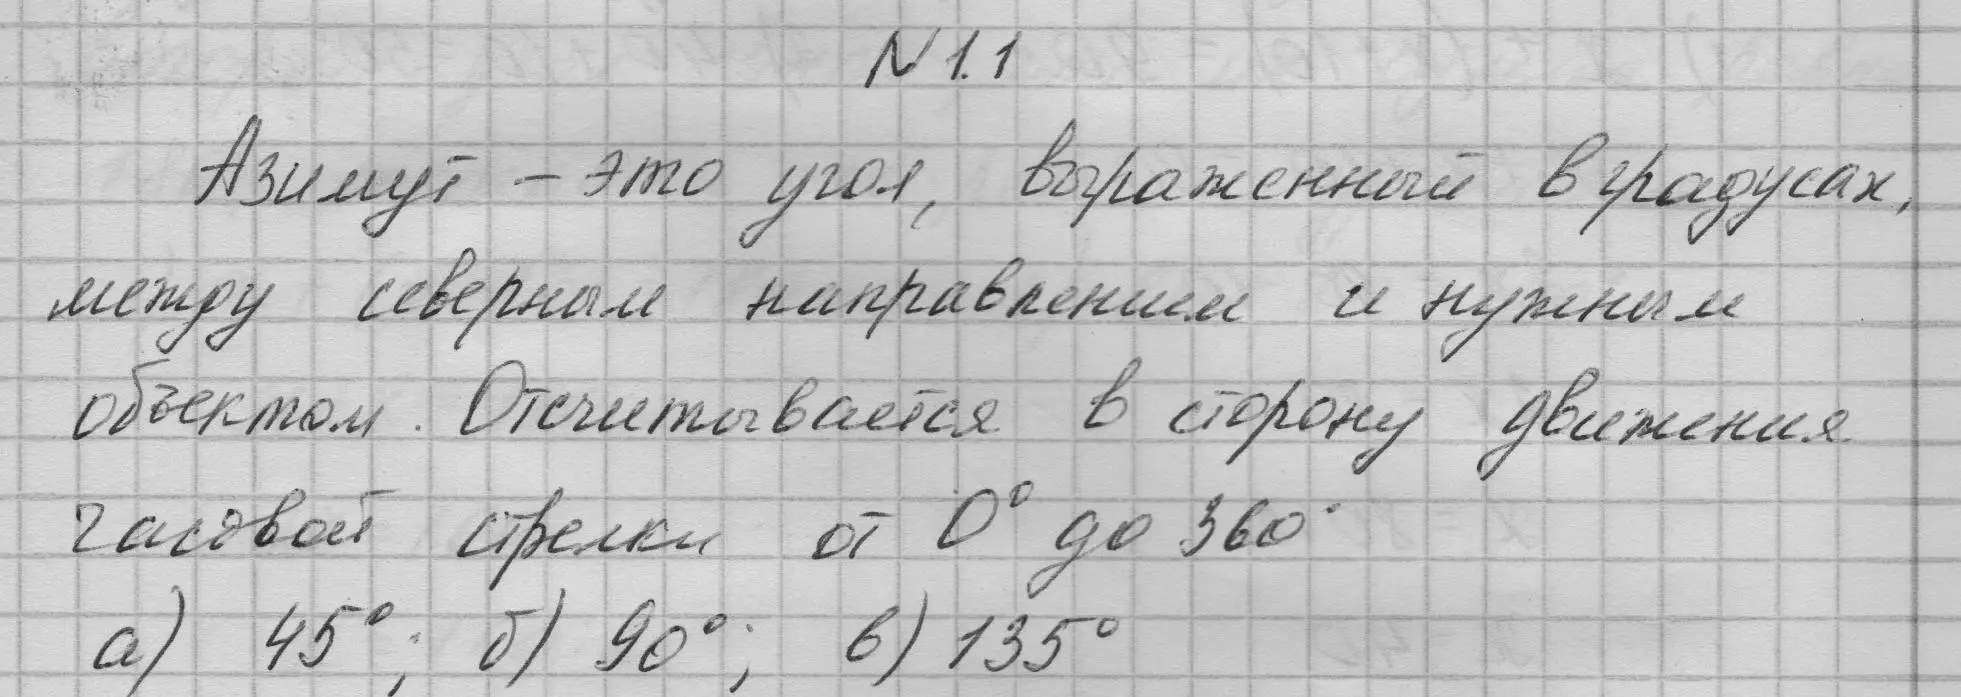 N 1.1
Азимут – это угол, выраженный в градусах,
между северным направлением и нужным
объектом. Отсчитывается в сторону движения
часовой стрелки от 0° до 360°
а) 45°; б) 90°; в) 135°